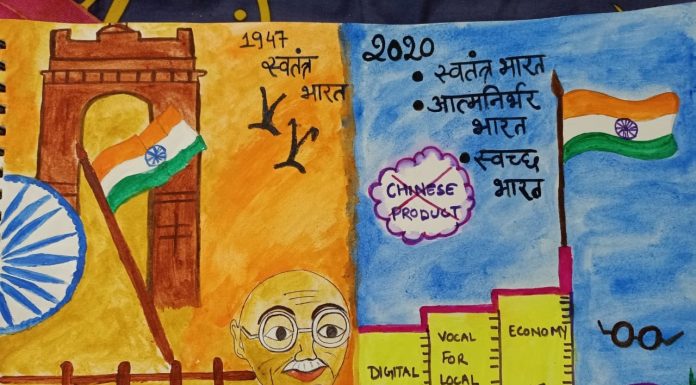 1947
स्वतंत्र
भारत
2020
• स्वतंत्र भारत
• आत्मनिर्भर
भारत
• स्वच्छ
भारत
CHINESE
PRODUCT
DIGITAL
VOCAL
FOR
LOCAL
ECONOMY